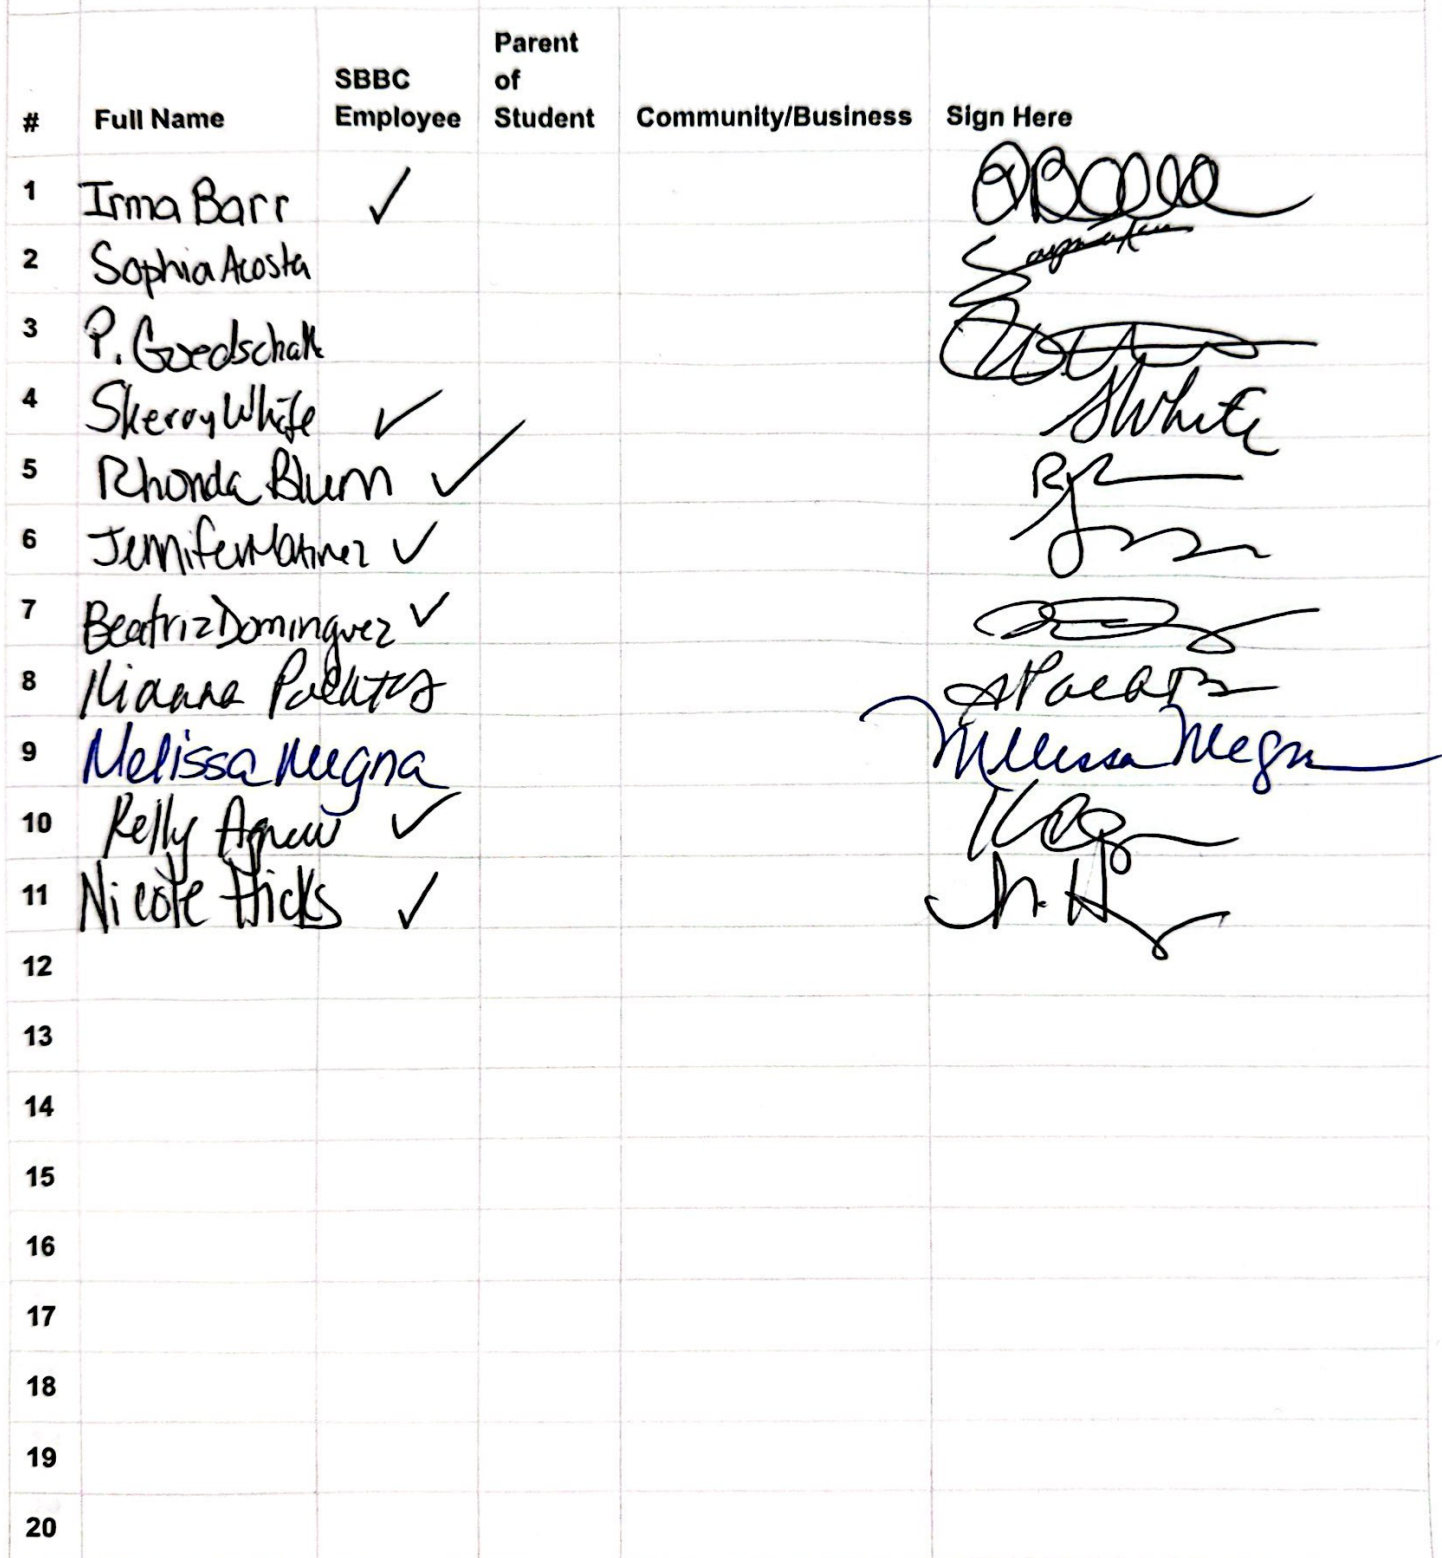 # Full Name SBBC Employee Parent of Student Community/Business Sign Here
1 Irma Barr ✓
2 Sophia Acosta
3 P. Goedschalk
4 Skerry White ✓ SWhite
5 Rhonda Blum ✓
6 Jennifer Matinez ✓
7 Beatriz Dominguez ✓
8
9 Melissa Megna Melissa Megna
10 Kelly Agnew ✓
11 Nicole Hicks ✓ N. H
12
13
14
15
16
17
18
19
20